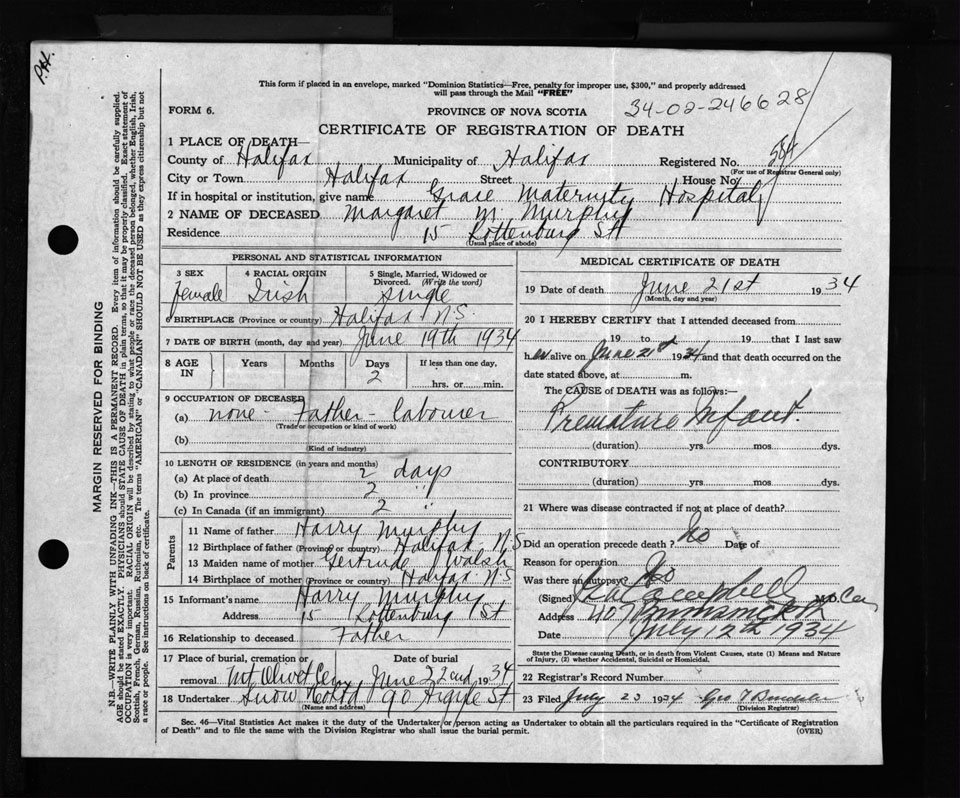 P.H.
This form if placed in an envelope, marked "Dominion Statistics—Free, penalty for improper use, $300," and properly addressed
will pass through the Mail "FREE"
34-02-246628
FORM 6.
PROVINCE OF NOVA SCOTIA
CERTIFICATE OF REGISTRATION OF DEATH
1 PLACE OF DEATH—
County of Halifax Municipality of Halifax Registered No. 584
(For use of Registrar General only)
City or Town Halifax Street House No.
If in hospital or institution, give name Grace Maternity Hospital
2 NAME OF DECEASED Margaret M. Murphy
Residence 15 Rottenburg St
(Usual place of abode)
PERSONAL AND STATISTICAL INFORMATION
3 SEX 4 RACIAL ORIGIN 5 Single, Married, Widowed or
Divorced. (Write the word)
Female Irish single
6 BIRTHPLACE (Province or country) Halifax N.S.
7 DATE OF BIRTH (month, day and year) June 19th 1934
8 AGE IN Years Months Days If less than one day,
2 hrs. or min.
9 OCCUPATION OF DECEASED
(a) none - Father - labourer
(Trade or occupation or kind of work)
(b)
(Kind of industry)
10 LENGTH OF RESIDENCE (in years and months)
(a) At place of death 2 days
(b) In province 2 "
(c) In Canada (if an immigrant) 2 "
Parents
11 Name of father Harry Murphy
12 Birthplace of father (Province or country) Halifax N.S
13 Maiden name of mother Gertrude Walsh
14 Birthplace of mother (Province or country) Halifax N.S
15 Informant's name Harry Murphy
Address 15 Rottenburg St
16 Relationship to deceased Father
17 Place of burial, cremation or Date of burial
removal Mt Olivet Cem June 22nd, 1934
18 Undertaker Snow Co Ltd 90 Argyle St
(Name and address)
MEDICAL CERTIFICATE OF DEATH
19 Date of death June 21st 1934
(Month, day and year)
20 I HEREBY CERTIFY that I attended deceased from
19 to 19 that I last saw
her alive on June 21st 1934 and that death occurred on the
date stated above, at m.
The CAUSE OF DEATH was as follows:—
Premature Infant.
(duration) yrs. mos. dys.
CONTRIBUTORY
(duration) yrs. mos. dys.
21 Where was disease contracted if not at place of death?
Did an operation precede death? No Date of
Reason for operation
Was there an autopsy? No
(Signed) Campbell M.D.
Address 407 Brunswick St
Date July 12th 1934
State the Disease causing Death, or in death from Violent Causes, state (1) Means and Nature
of Injury, (2) whether Accidental, Suicidal or Homicidal.
22 Registrar's Record Number
23 Filed July 23 1934 Geo
(Division Registrar)
Sec. 46—Vital Statistics Act makes it the duty of the Undertaker or person acting as Undertaker to obtain all the particulars required in the "Certificate of Registration
of Death" and to file the same with the Division Registrar who shall issue the burial permit. (OVER)
MARGIN RESERVED FOR BINDING
N.B.—WRITE PLAINLY WITH UNFADING INK—THIS IS A PERMANENT RECORD. Every item of information should be carefully supplied.
AGE should be stated EXACTLY. PHYSICIANS should STATE CAUSE OF DEATH in plain terms, so that it may be properly classified. Exact statement of
OCCUPATION is very important. RACIAL ORIGIN will be described by stating to what people or race the deceased person belonged, whether English, Irish,
Scottish, French, German, Russian, Ruthenian, etc. The terms "AMERICAN" or "CANADIAN" SHOULD NOT BE USED as they express citizenship but not
a race or people. See instructions on back of certificate.